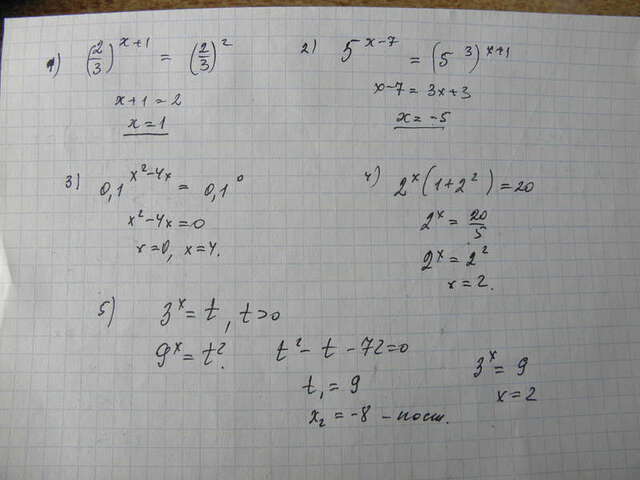 1) (2/3)^(x+1) = (2/3)^2
x+1=2
x=1
2) 5^(x-7) = (5^3)^(x+1)
x-7 = 3x+3
x=-5
3) 0,1^(x^2-4x) = 0,1^0
x^2-4x=0
x=0, x=4.
4) 2^x(1+2^2)=20
2^x = 20/5
2^x = 2^2
x=2.
5) 3^x = t, t>0
9^x = t^2. t^2 - t - 72=0
t_1 = 9
x_2 = -8 -
3^x = 9
x=2